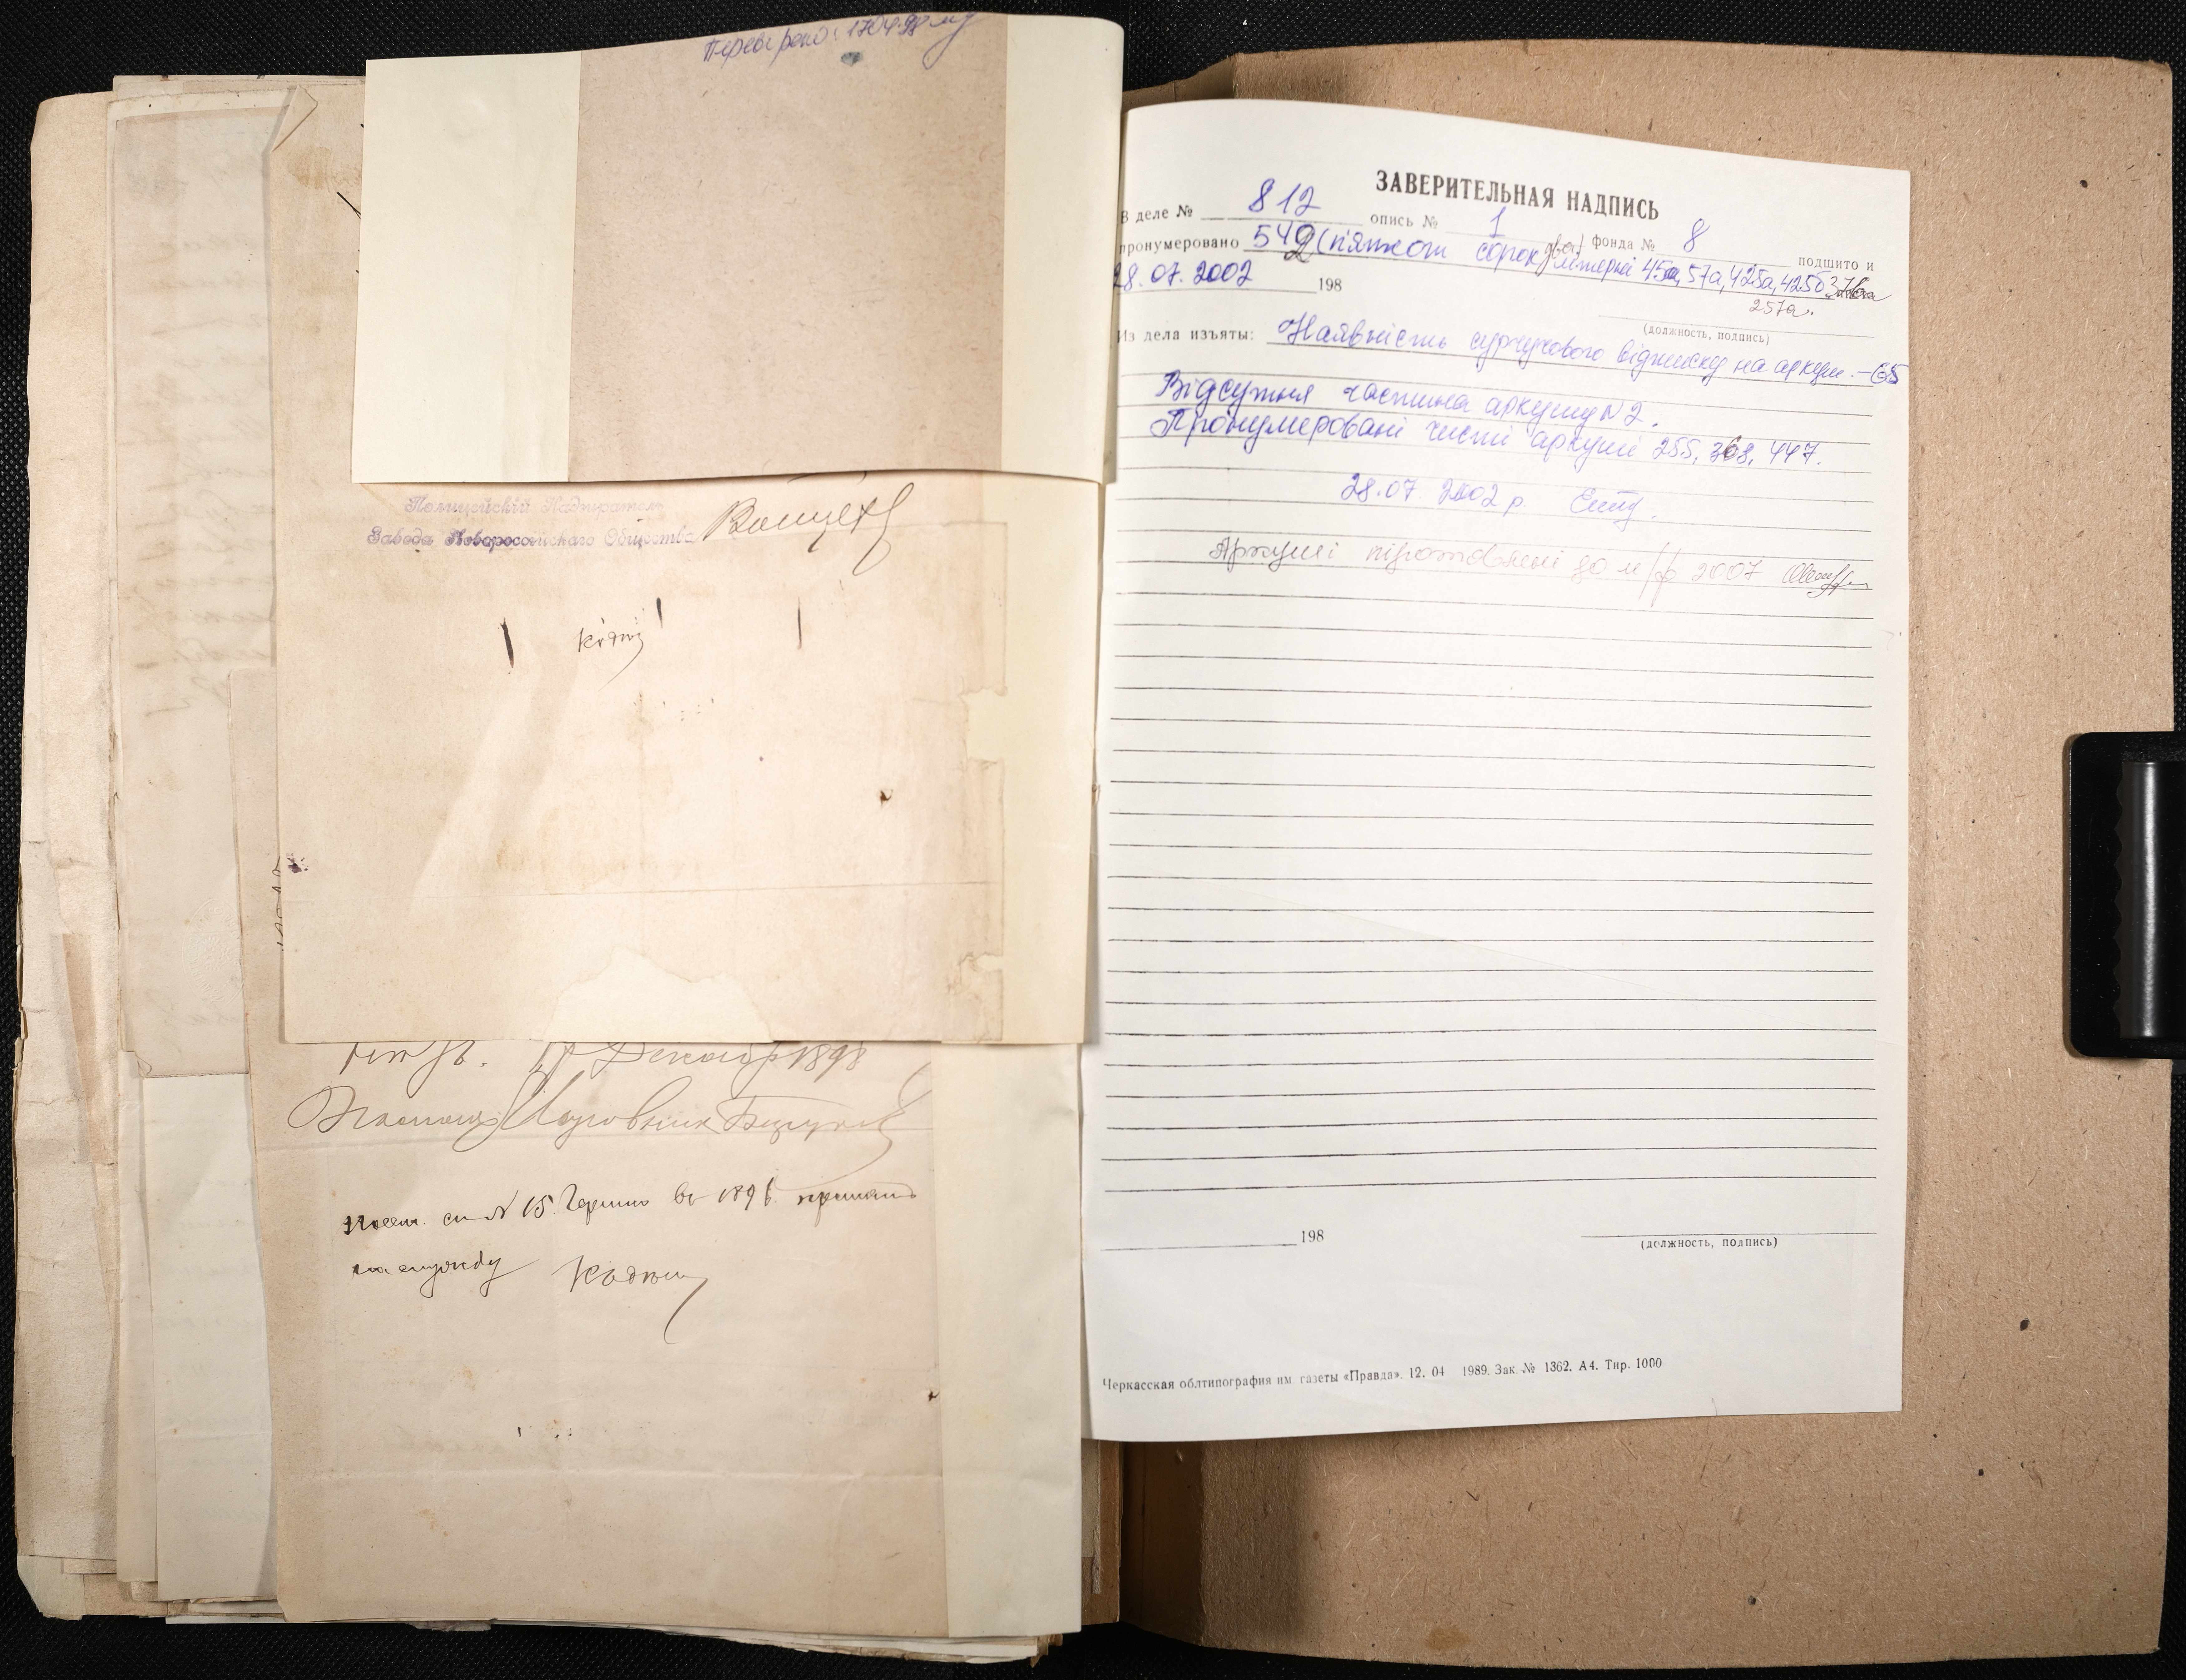 Перевірено: 17.04.98
Полицейскій Надзиратель
Завода Новороссійскаго Общества
Декабр 1898
№ 15 1896
ЗАВЕРИТЕЛЬНАЯ НАДПИСЬ
В деле № 812 опись № 1 фонда № 8
подшито и
пронумеровано 542 (п'ятсот сорок два) літерні 45а, 57а, 425а, 425б 376а
257а.
28.07.2002 198
(должность, подпись)
Из дела изъяты: Наявність сургучового відтиску на аркуш. - 65
Відсутня частина аркушу N 2.
Пронумеровані чисті аркуші 255, 368, 447.
28.07 2002 р.
Аркуші підготовлені до м/ф 2007
198
(должность, подпись)
Черкасская облтипография им газеты «Правда». 12. 04 1989. Зак. № 1362. А4. Тир. 1000